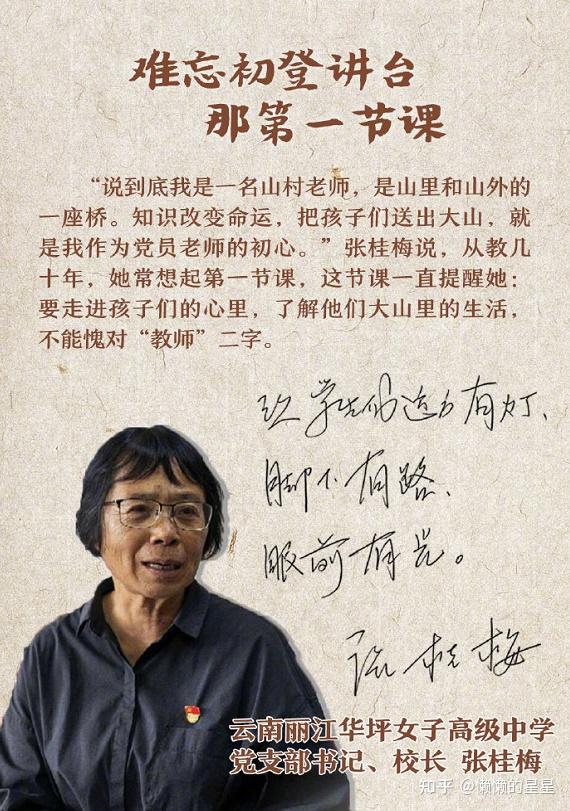 难忘初登讲台
那第一节课
“说到底我是一名山村老师，是山里和山外的
一座桥。知识改变命运，把孩子们送出大山，就
是我作为党员老师的初心。”张桂梅说，从教几
十年，她常想起第一节课，这节课一直提醒她：
要走进孩子们的心里，了解他们大山里的生活，
不能愧对“教师”二字。
学生们远方有灯、
脚下有路、
眼前有光。
张桂梅
云南丽江华坪女子高级中学
党支部书记、校长 张桂梅
知乎 @懒懒的星星